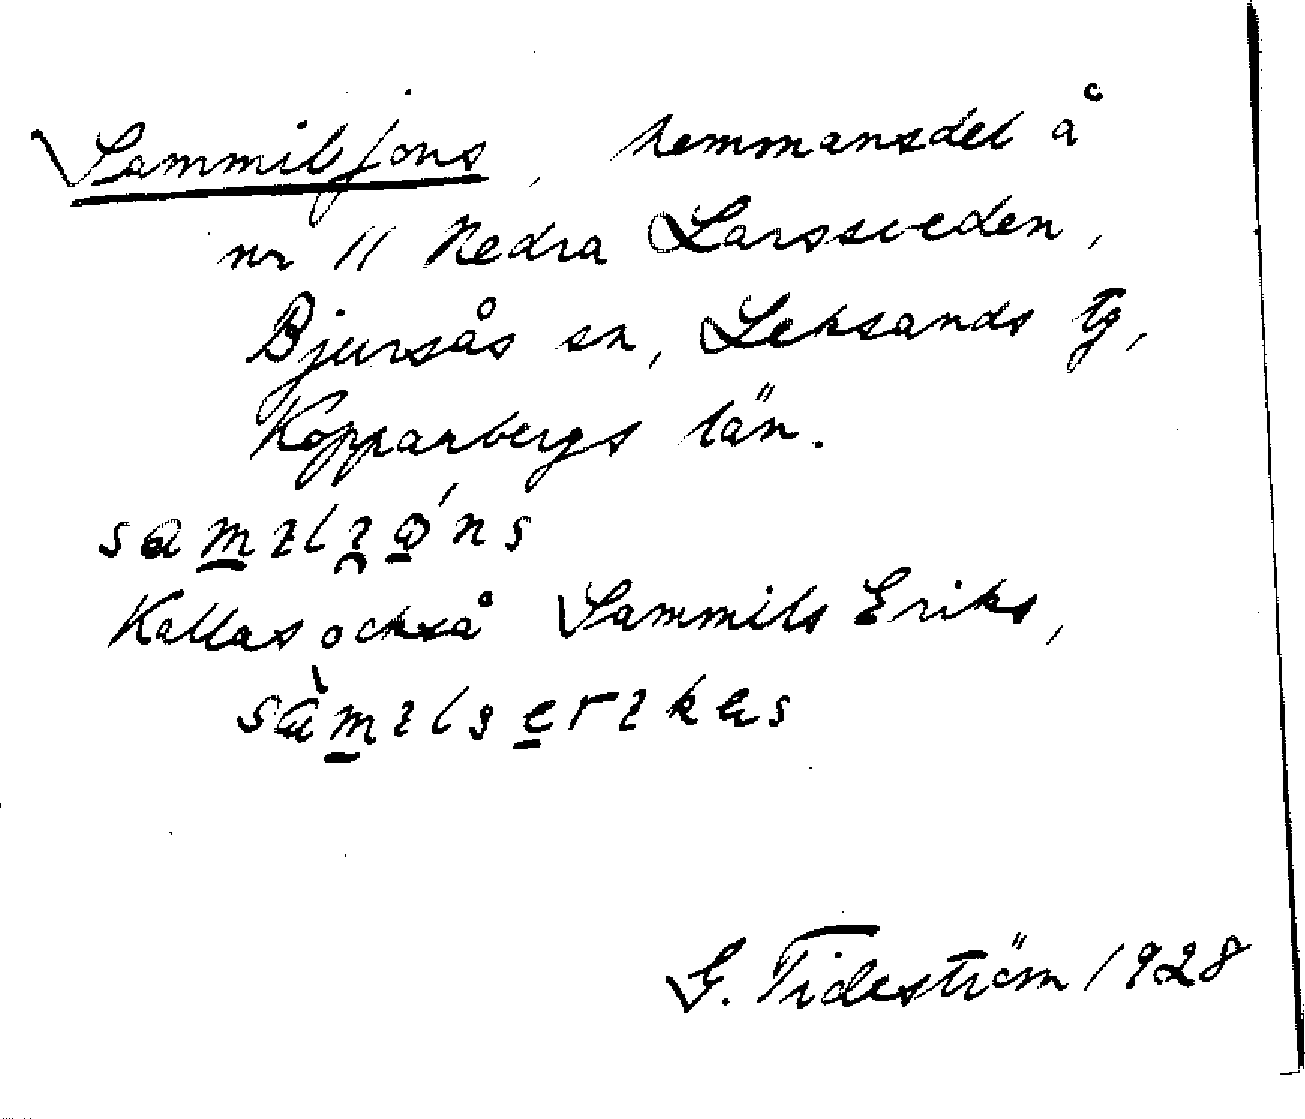 Sammiljons, hemmansdel å
nr 11 Nedra Larssveden,
Bjursås sn, Leksands tg,
Kopparbergs län.
Kallas också Sammils Eriks,
G. Tideström 1928